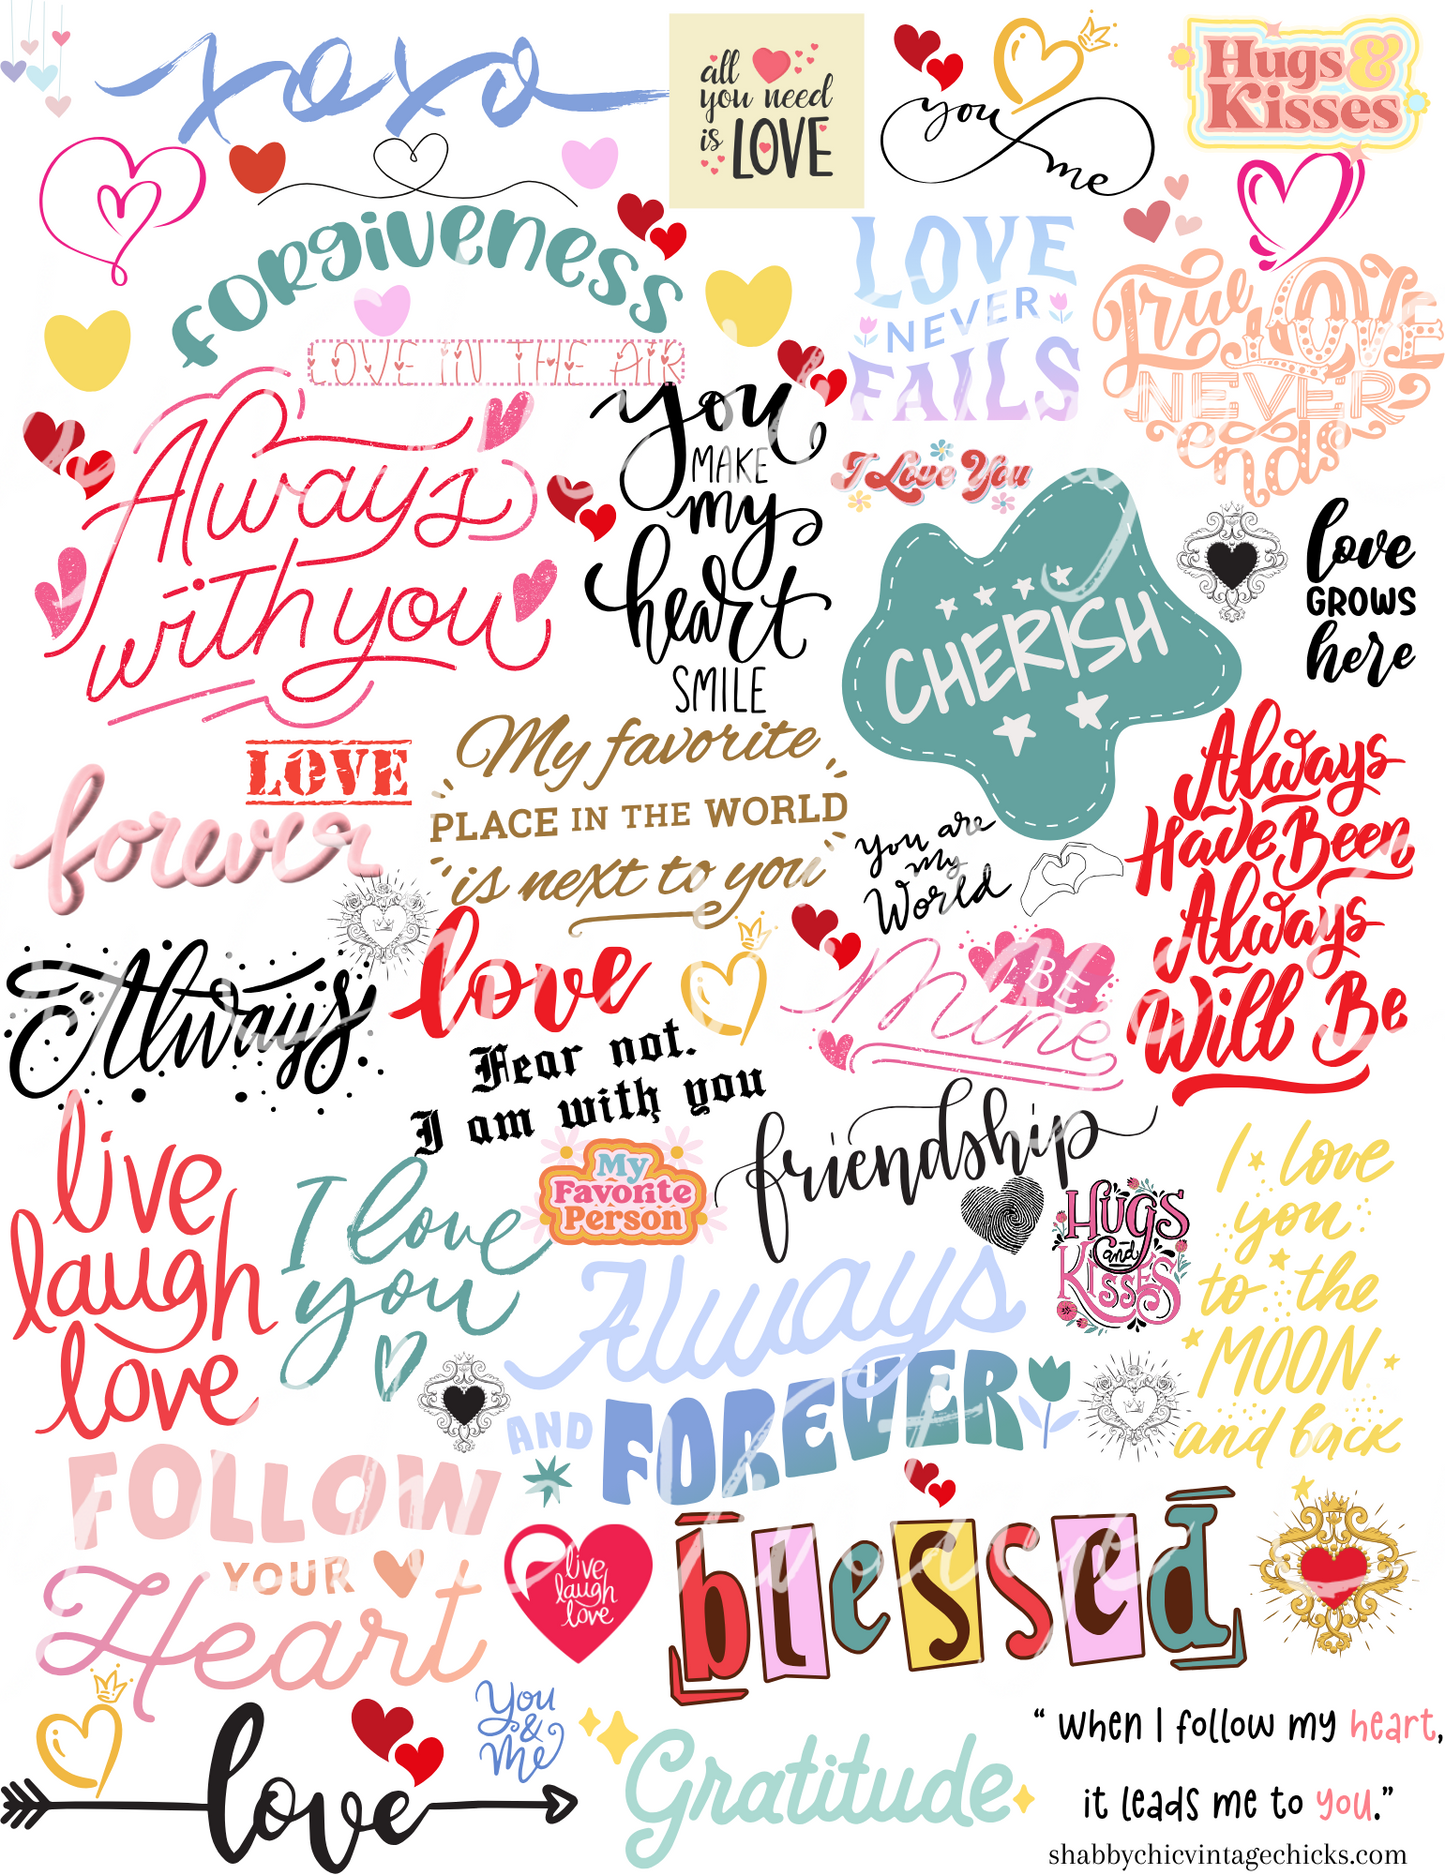 xoxo
all
you need
is LOVE
you
me
Hugs &
Kisses
FORgiVENESS
LOVE
NEVER
FAILS
True LOVE
NEVER
ends
LOVE IN THE AIR
Always
with you
you
MAKE
my
heart
SMILE
I Love You
CHERISH
love
GROWS
here
LOVE
forever
My favorite
PLACE IN THE WORLD
is next to you
You are
my
World
Always
Have Been
Always
Will Be
Always
love
BE
Mine
Fear not.
I am with you
friendship
live
laugh
love
I love
you
My
Favorite
Person
HUGS
and
KISSES
I love
you
to the
MOON
and back
Always
AND FOREVER
FOLLOW
YOUR
Heart
live
laugh
love
blessed
love
You
&
Me
Gratitude
“ when I follow my heart,
it leads me to you.”
shabbychicvintagechicks.com